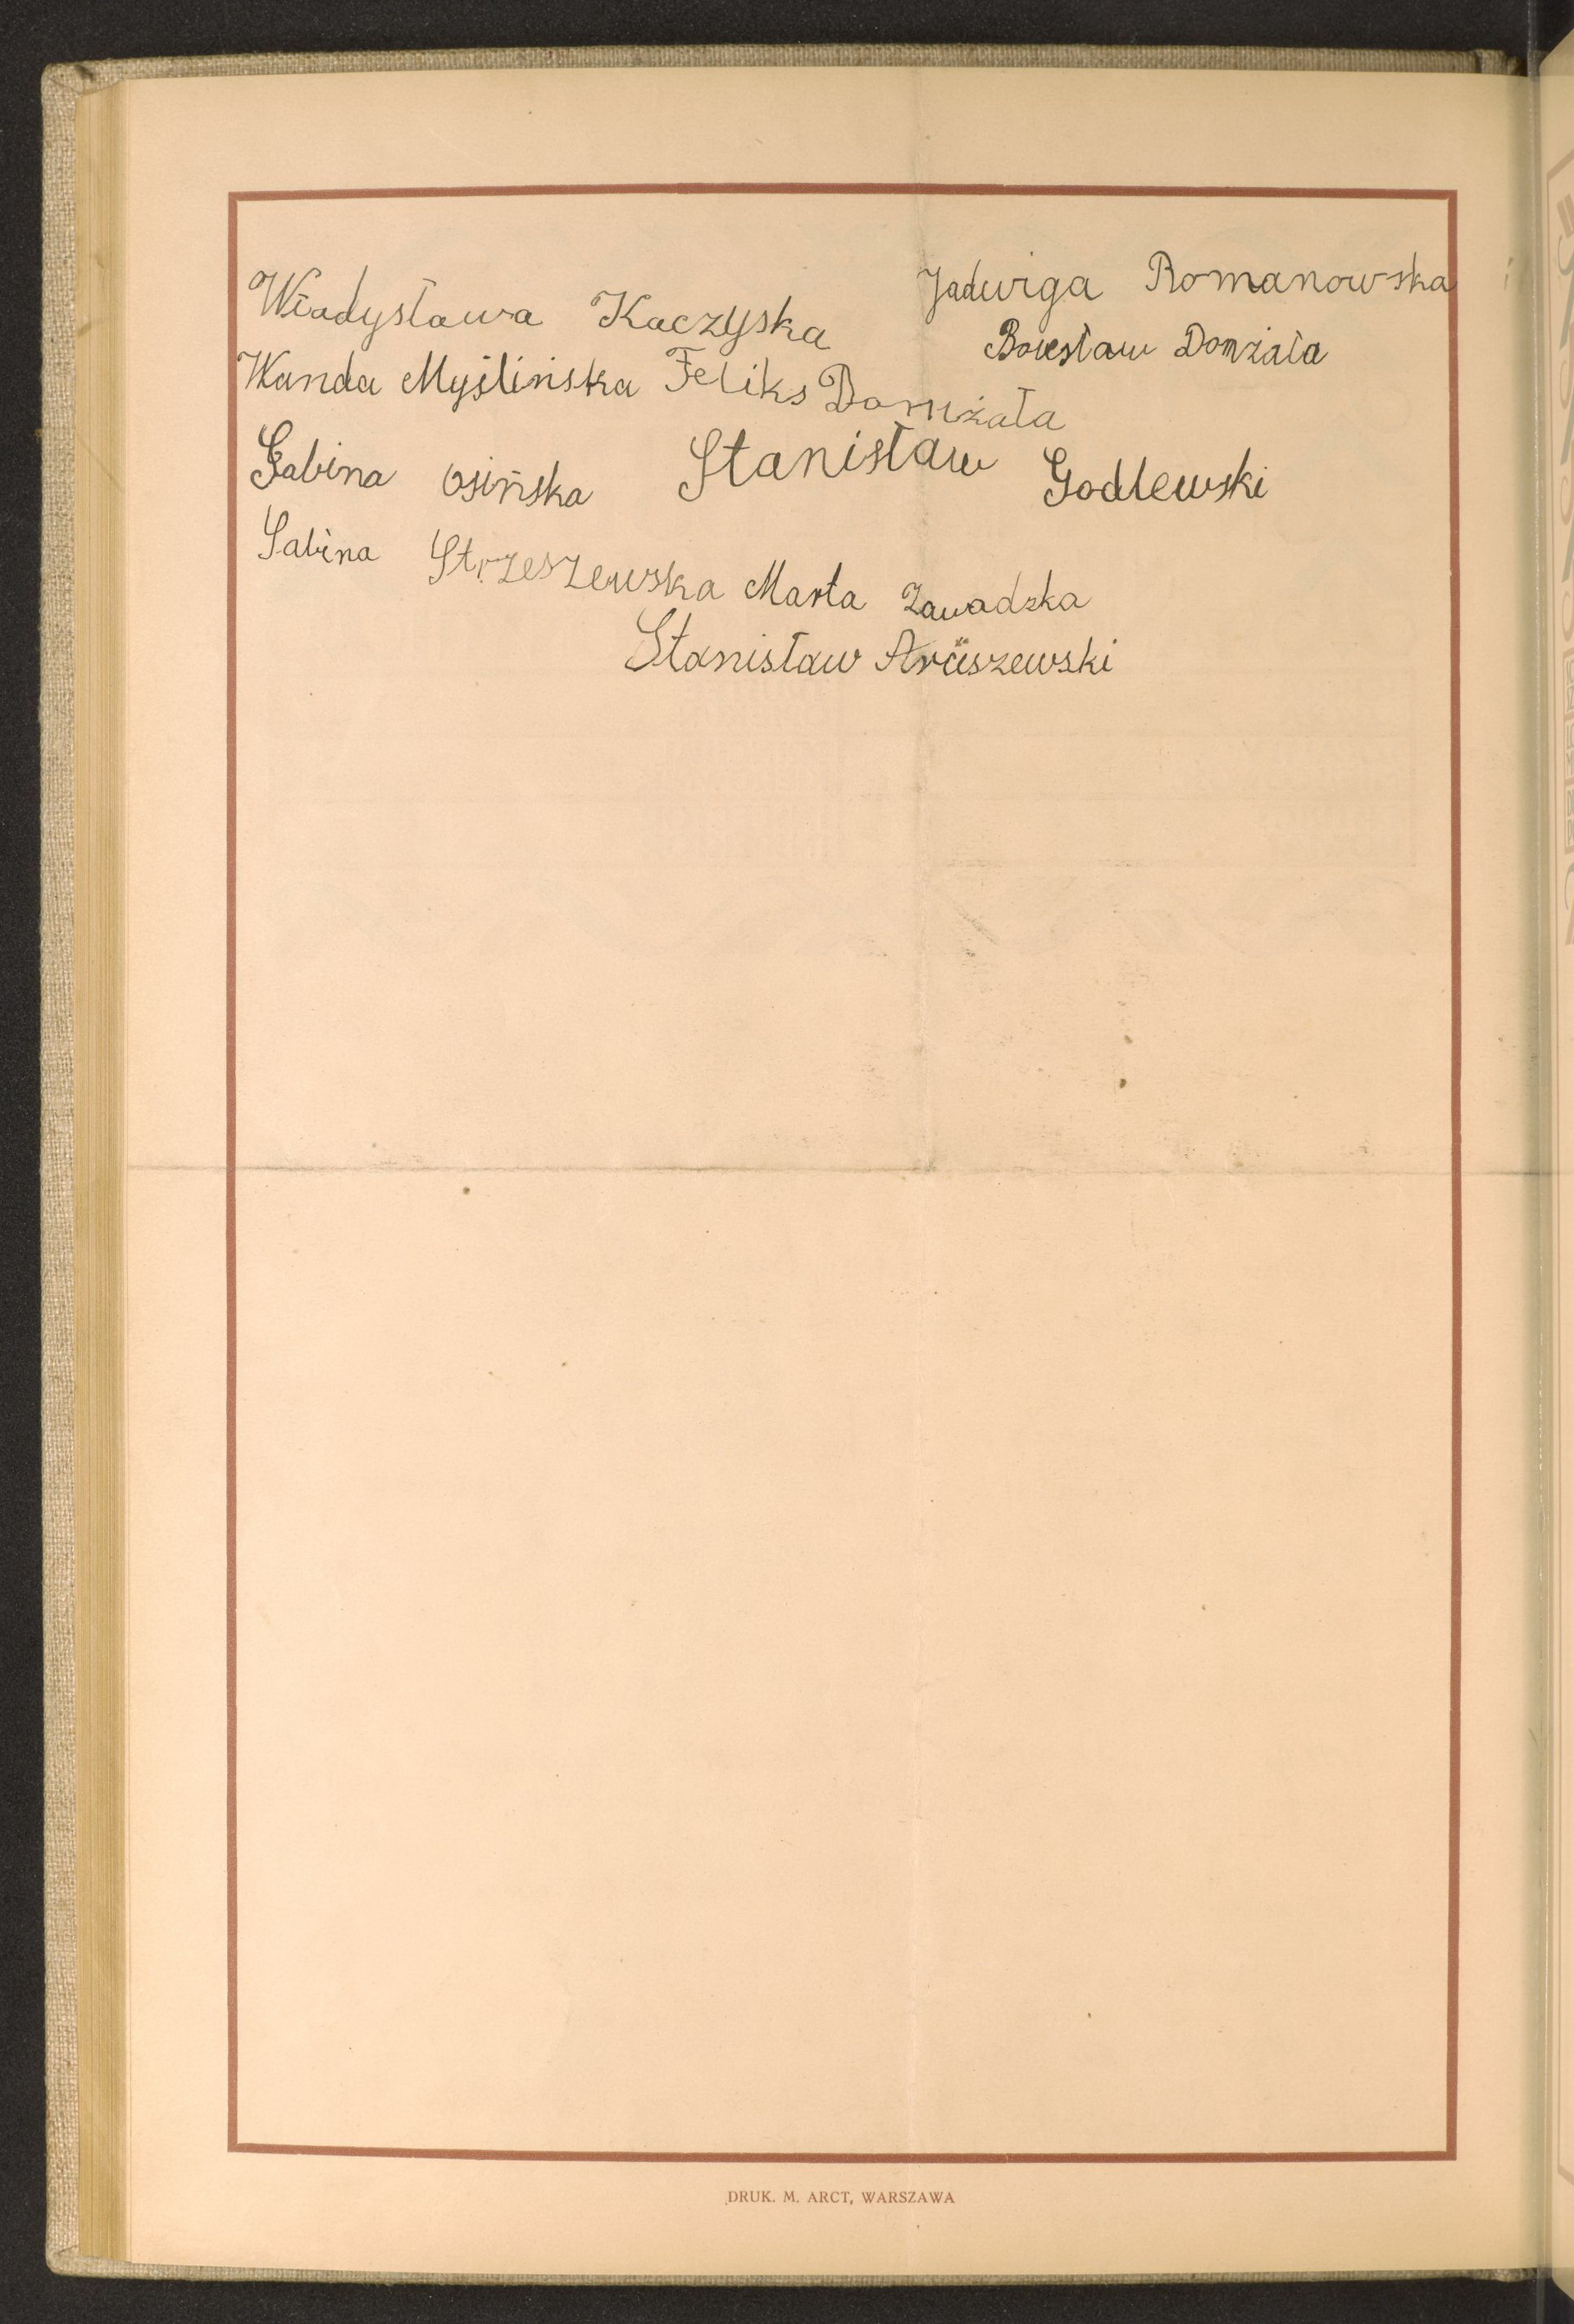 Władysława Kaczyska Jadwiga Romanowska
Bolesław Domżała
Wanda Myślińska Feliks Domżała
Sabina Osińska Stanisław Godlewski
Sabina Strzeszewska Marta Zawadzka
Stanisław Aruszewski
DRUK. M. ARCT, WARSZAWA